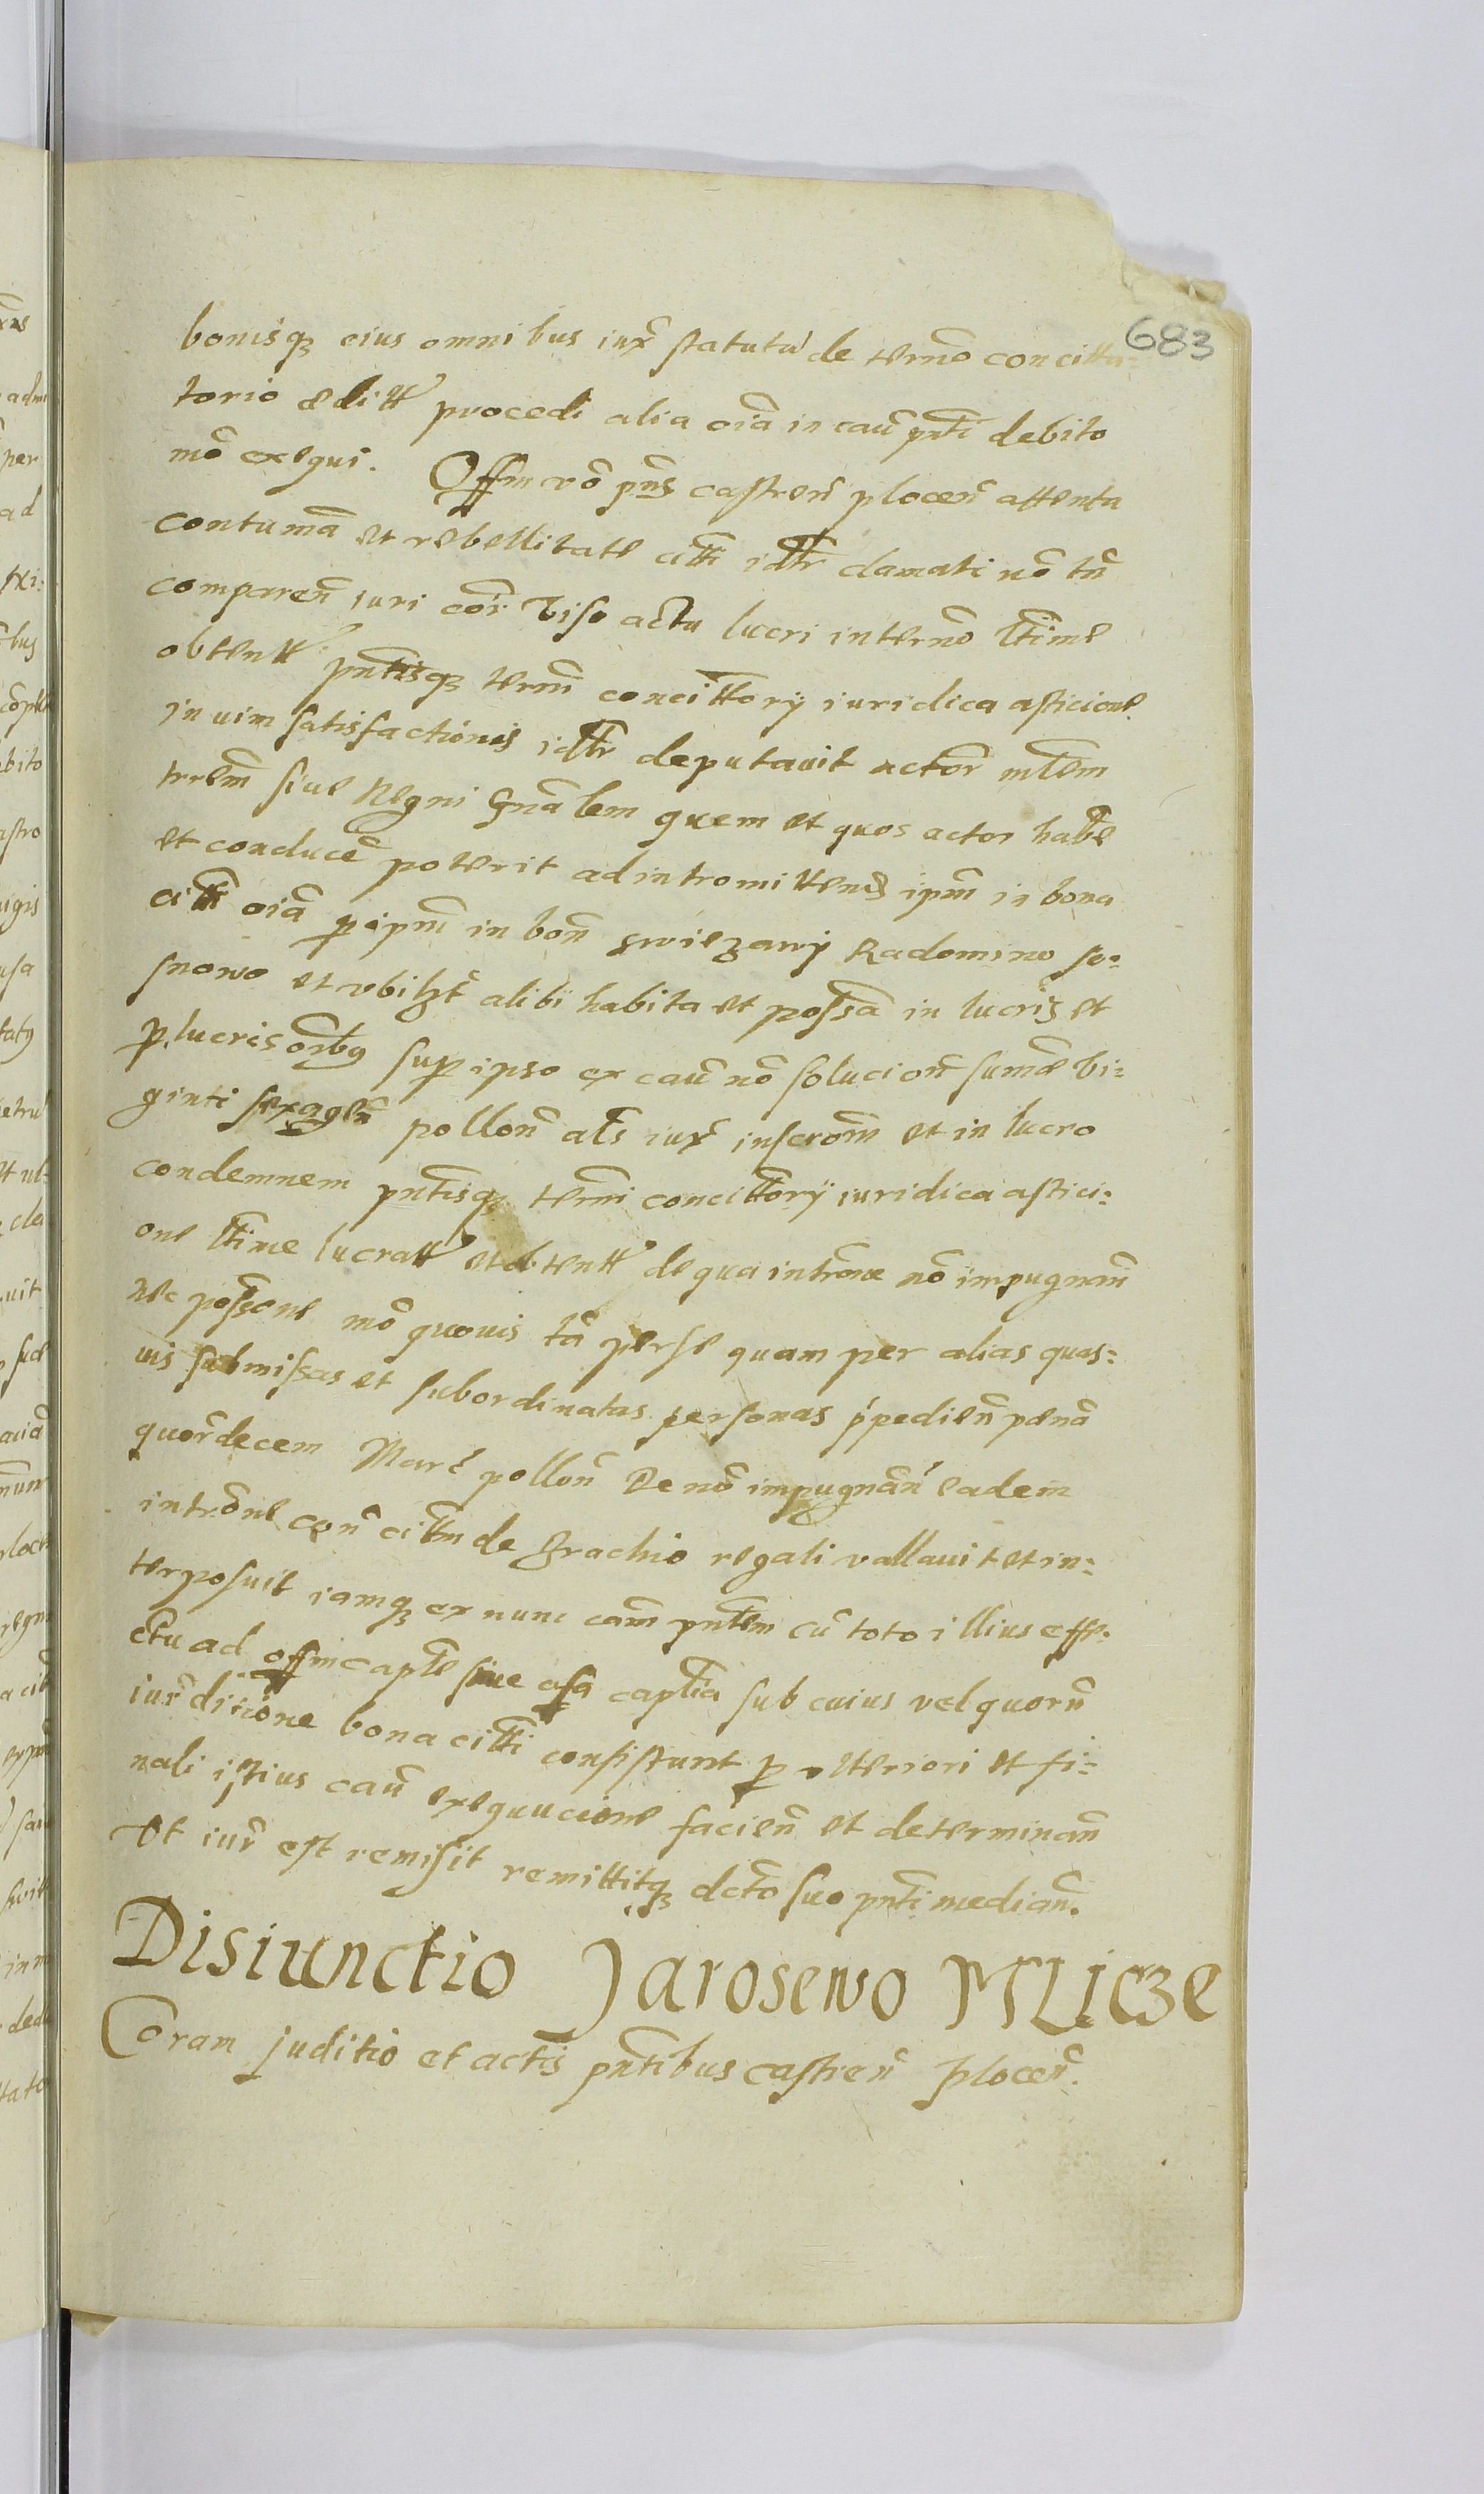 683
bonisqз eius omnibus iux̃ statutũ de term̃o concitta-
torio æditt procedi alia oĩa in caũ pñti debito
mõ exequi. Offm vẽo pñs castreñ ploceñ attenta
contumã et rebellitate citti idtr clamati nõ tñ
compareñ iuri coñ viso actu lucri in termõ ltime
obtentt pñtisqз term̃i concittory iuridica asticione
in vim satisfactionis idtr deputauit actorĩ mltem
trrem̃ siue Regni Gñalem quem et quos actor habe
et conducẽ poterit ad intromittend ipm̃ in bona
citti oĩa p ipm̃ in boñ gwiezany Radomino so-
snowo et vbilзt alibi habita et possa in lucris et
p lucris oĩbg sup ipso ex caũ nõ solucioñ sumæ vi-
ginti sexageñ polloñ als iux̃ inscrom̃ et in lucro
condemnem pñtisqз term̃i concittory iuridica astici-
one ltime lucratt et obtentt de qua introm̃e nõ impugnañ
nec possone mõ quouis tã per se quam per alias quas-
uis submissas et subordinatas personas pẽpedieñ pæna
quor̃decem Marc polloñ De nõ impugnañ eadem
introm̃ne coñ cittm de Grachio regali vallauit et in-
terposuit iamqз ex nunc cam̃ pñtem cũ toto illius effe-
ctu ad offm capte siue asa captia sub cuius vel quorũ
iur̃ditione bona citti consistunt p vlteriori et fi-
nali istius caũ exequucione facieñ et determinañ
vt iur̃ est remisit remittitqз dcto suo pñti mediañ.
Disiunctio Jarosewo Mlicze
Coram juditio et actis pñtibus castreñ Ploceñ.